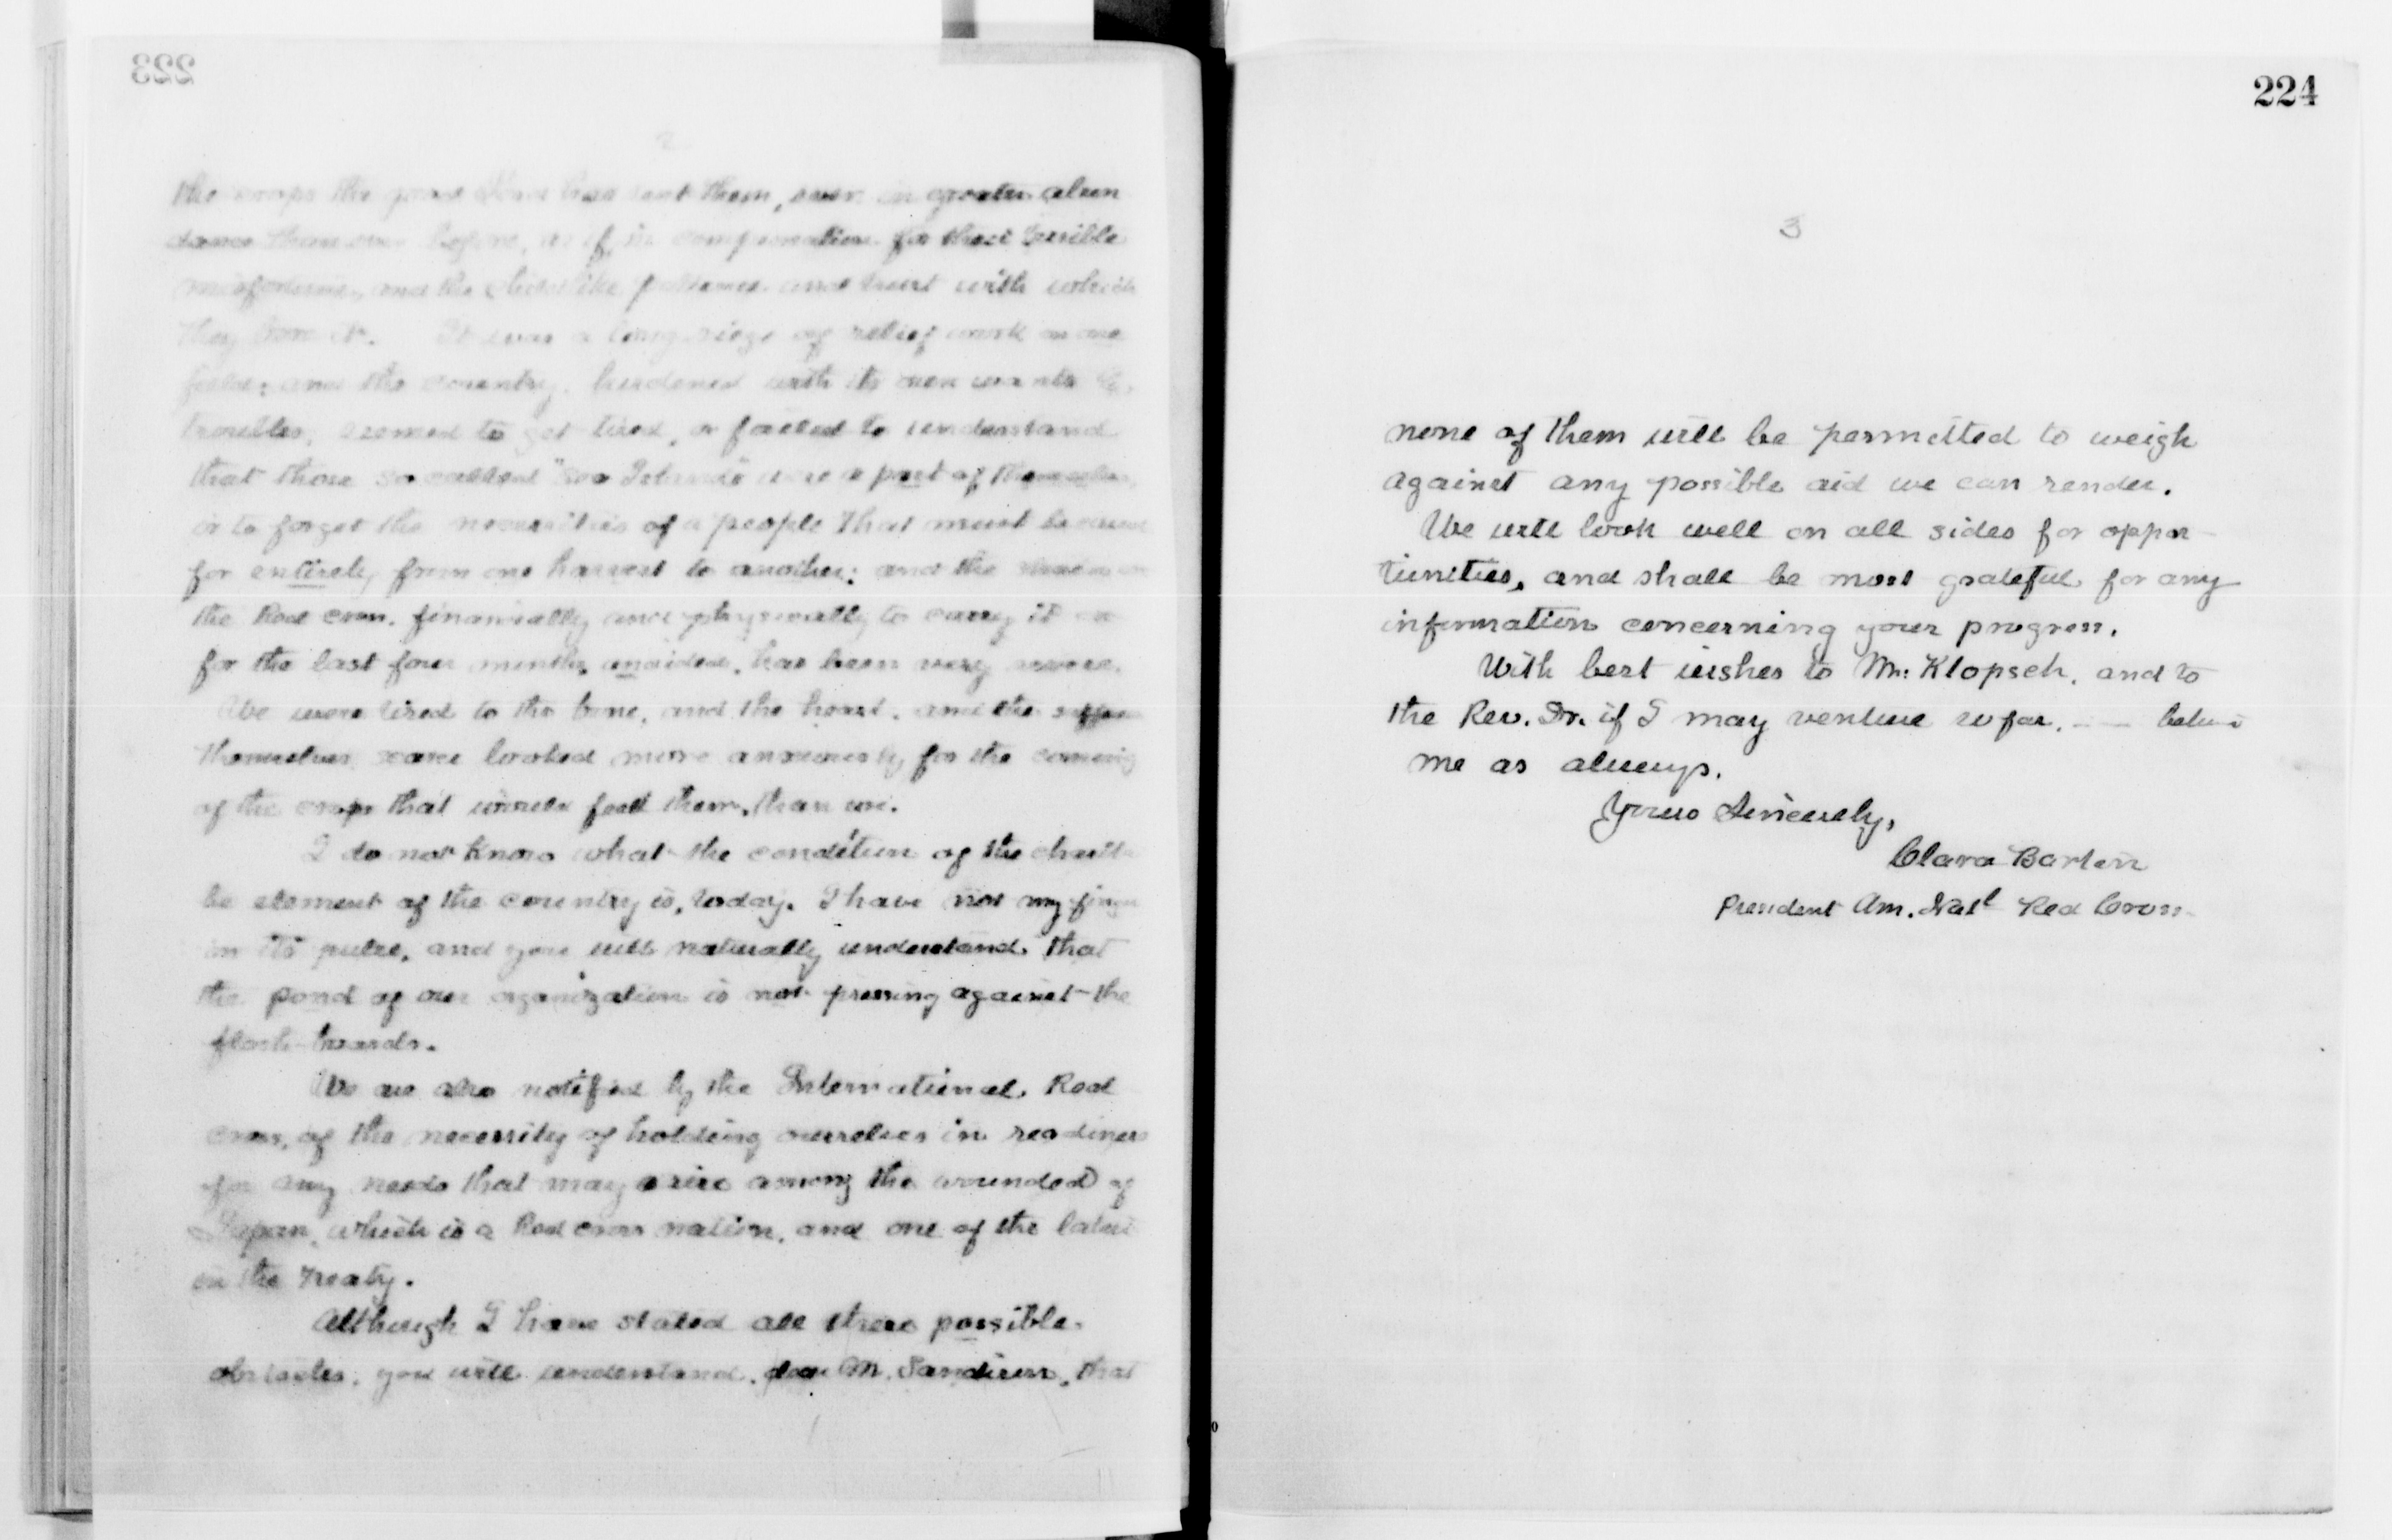 223
2
the crops the good Lord has sent them, even in greater abun
dance than ever before, as if in compensation for their terrible
misfortune, and the childlike patience and trust with which
they bore it. It was a long siege of relief work on one
field; and the country, burdened with its own wants &
troubles, seemed to get tired, or failed to understand
that those so called "Sea Islands" were a part of themselves,
or to forget the necessities of a people that must be cared
for entirely, from one harvest to another; and the strain on
the Red cross, financially and physically to carry it on
for the last four months, unaided, has been very severe.
We were tired to the bone, and the heart, and the
themselves scarce looked more anxiously for the coming
of the crops that would feed them, than we.
I do not know what the condition of the charita
ble element of the country is, today. I have not my finger
on its pulse, and you will naturally understand that
the pond of our organization is not pressing against the
flash-boards.
We are also notified by the International Red
Cross, of the necessity of holding ourselves in readiness
for any needs that may arise among the wounded of
Japan, which is a Red cross nation, and one of the latest
in the Treaty.
Although I have stated all these possible
obstacles, you will understand, dear M. Sandison, that
224
3
none of them will be permitted to weigh
against any possible aid we can render.
We will look well on all sides for oppor-
tunities, and shall be most grateful for any
information concerning your progress.
With best wishes to Mr. Klopsch, and to
the Rev. Dr. if I may venture so far, — believe
me as always.
Yours Sincerely,
Clara Barton
President Am. Natl Red Cross